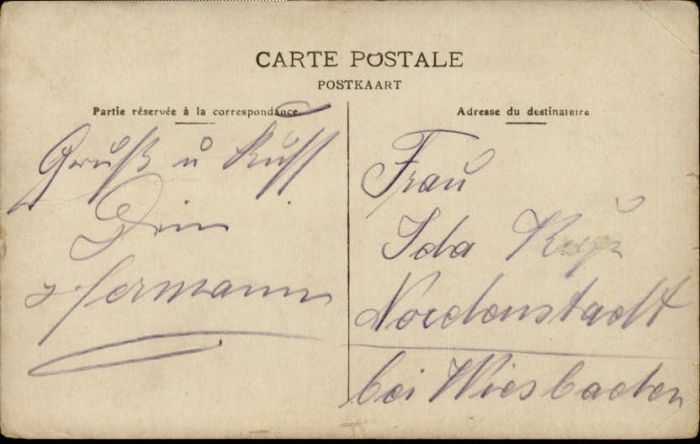 CARTE POSTALE
POSTKAART
Partie réservée à la correspondance
Gruß u Kuss
Dein
Hermann
Adresse du destinataire
Frau
Ida
Nordenstadt
bei Wiesbaden